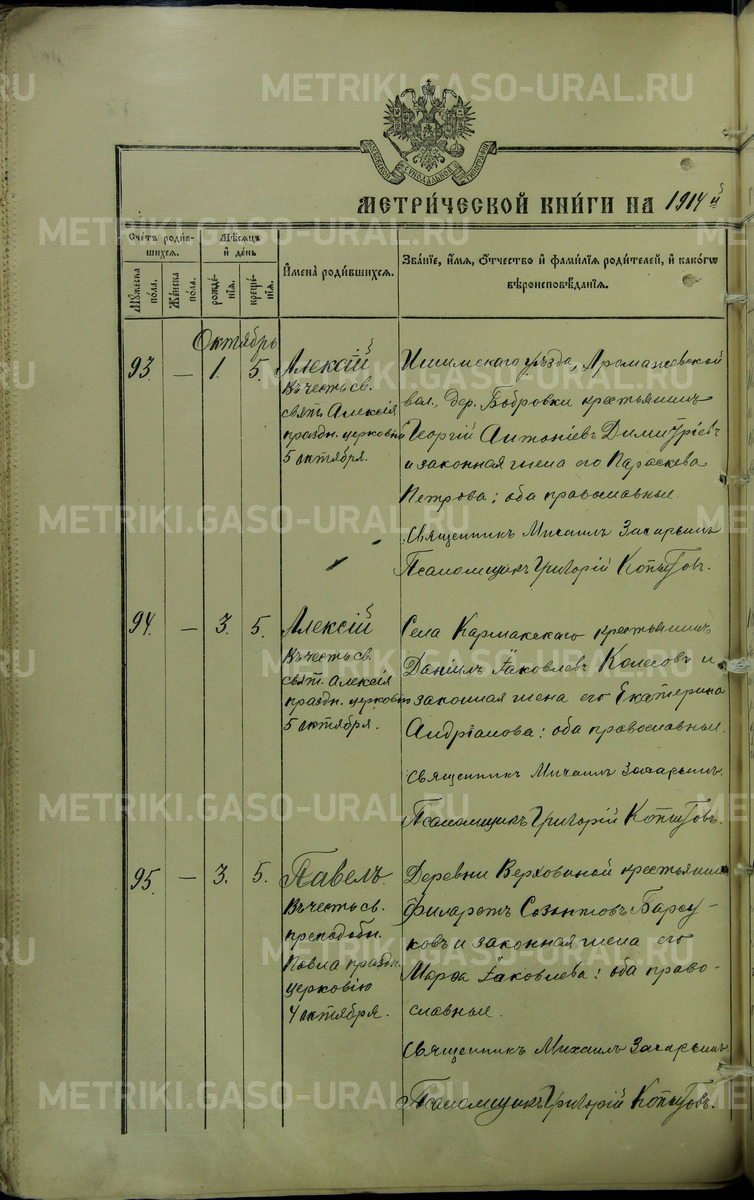 METRIKI.GASO-URAL.RU
МОСКОВСКОЙ СѴНОДАЛЬНОЙ ТИПОГРАФІИ
МЕТРИ́ЧЕСКОЙ КНИ́ГИ НА 1914й
Сче́тъ роди́вшихся.
Му́жеска по́ла.
Же́нска по́ла.
Мѣ́сяцъ и҆ де́нь
рожде́нїѧ.
креще́нїѧ.
И҆мена̀ роди́вшихся.
Зва́нїе, и҆́мѧ, ѻ҆́тчество и҆ фами́лїѧ роди́телей, и҆ како́гѡ
вѣроисповѣ́данїѧ.
Октябрь
93. — 1. 5. Алексій
Въ честь св.
свят. Алексія
праздн. церковію
5 октября.
Ишимскаго уѣзда, Аромашевской
вол., дер. Бобровки крестьянинъ
Георгій Антоніевъ Димитріевъ
и законная жена его Параскева
Петрова; оба православные.
Священникъ Михаилъ Захарьинъ
Псаломщикъ Григорій Копытовъ.
94. — 3. 5. Алексій
Въ честь св.
свят. Алексія
праздн. церковію
5 октября.
Села Кармакскаго крестьянинъ
Даніилъ Іаковлевъ Колесовъ и
законная жена его Екатерина
Андріанова: оба православные.
Священникъ Михаилъ Захарьинъ.
Псаломщикъ Григорій Копытовъ.
95. — 3. 5. Павелъ.
Въ честь св.
преподобн.
Павла праздн.
церковію
4 октября.
Деревни Верховиной крестьянинъ
Филаретъ Созонтовъ Барсу-
ковъ и законная жена его
Марѳа Іаковлева: оба право-
славные.
Священникъ Михаилъ Захарьинъ
Псаломщикъ Григорій Копытовъ.